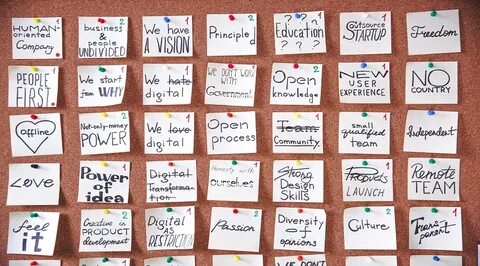 HUMAN-
oriented
Company
1
business
&
people
UNDIVIDED
2
We have
A VISION
1
Principled
2
Education
? ? ?
? ? ?
Outsource
STARTUP
1
Freedom
2
PEOPLE
FIRST.
1
We start
from WHY
2
We hate
digital
1
WE DON'T WORK
WITH
Government
Open
knowledge
2
NEW
USER
EXPERIENCE
1
NO
COUNTRY
Offline
Not-only-money
POWER
2
We love
digital
1
Open
process
Team
Community
1
small
qualified
team
Independent
Love
Power
of idea
1
Digital
Transforma-
tion
1
Honesty with
ourselves
Strong
Design
Skills
LAUNCH
1
Remote
TEAM
feel
it
1
Creative in
PRODUCT
development
2
Digital
AS
RESTRICTION
1
Passion
2
Diversity
of
opinions
Culture
2
Trans-
parent
1
WE DON'T